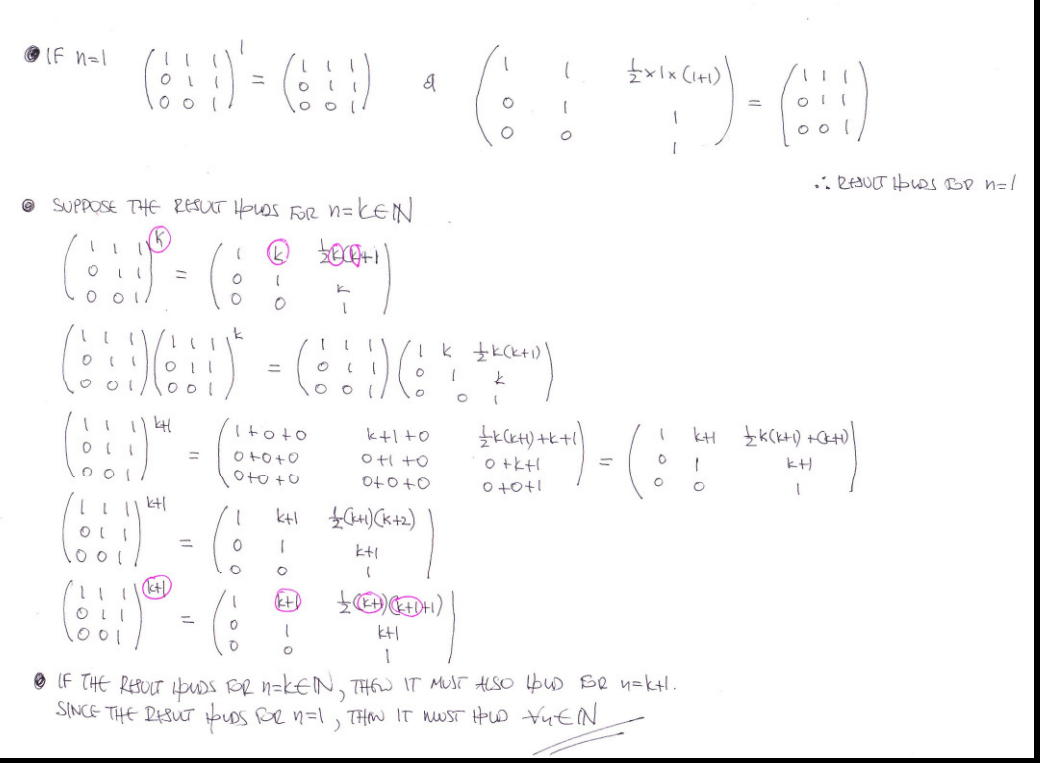 IF n=1 (1 1 1; 0 1 1; 0 0 1)^1 = (1 1 1; 0 1 1; 0 0 1) & (1 1 ½×1×(1+1); 0 1 1; 0 0 1) = (1 1 1; 0 1 1; 0 0 1)
∴ RESULT HOLDS FOR n=1
SUPPOSE THE RESULT HOLDS FOR n=k∈ℕ
(1 1 1; 0 1 1; 0 0 1)^k = (1 k ½k(k+1; 0 1 k; 0 0 1)
(1 1 1; 0 1 1; 0 0 1)(1 1 1; 0 1 1; 0 0 1)^k = (1 1 1; 0 1 1; 0 0 1)(1 k ½k(k+1); 0 1 k; 0 0 1)
(1 1 1; 0 1 1; 0 0 1)^k+1 = (1+0+0 k+1+0 ½k(k+1)+k+1; 0+0+0 0+1+0 0+k+1; 0+0+0 0+0+0 0+0+1) = (1 k+1 ½k(k+1)+(k+1); 0 1 k+1; 0 0 1)
(1 1 1; 0 1 1; 0 0 1)^k+1 = (1 k+1 ½(k+1)(k+2); 0 1 k+1; 0 0 1)
(1 1 1; 0 1 1; 0 0 1)^k+1 = (1 k+1 ½(k+1)(k+1+1); 0 1 k+1; 0 0 1)
IF THE RESULT HOLDS FOR n=k∈ℕ, THEN IT MUST ALSO HOLD FOR n=k+1.
SINCE THE RESULT HOLDS FOR n=1, THEN IT MUST HOLD ∀n∈ℕ